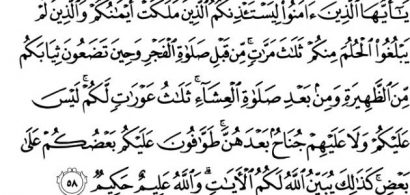 يَٰٓأَيُّهَا ٱلَّذِينَ ءَامَنُوا۟ لِيَسْتَـْٔذِنكُمُ ٱلَّذِينَ مَلَكَتْ أَيْمَٰنُكُمْ وَٱلَّذِينَ لَمْ
يَبْلُغُوا۟ ٱلْحُلُمَ مِنكُمْ ثَلَٰثَ مَرَّٰتٍ ۚ مِّن قَبْلِ صَلَوٰةِ ٱلْفَجْرِ وَحِينَ تَضَعُونَ ثِيَابَكُم
مِّنَ ٱلظَّهِيرَةِ وَمِنۢ بَعْدِ صَلَوٰةِ ٱلْعِشَآءِ ۚ ثَلَٰثُ عَوْرَٰتٍ لَّكُمْ ۚ لَيْسَ
عَلَيْكُمْ وَلَا عَلَيْهِمْ جُنَاحٌۢ بَعْدَهُنَّ ۚ طَوَّٰفُونَ عَلَيْكُم بَعْضُكُمْ عَلَىٰ
بَعْضٍ ۚ كَذَٰلِكَ يُبَيِّنُ ٱللَّهُ لَكُمُ ٱلْـَٔايَٰتِ ۗ وَٱللَّهُ عَلِيمٌ حَكِيمٌ ٥٨